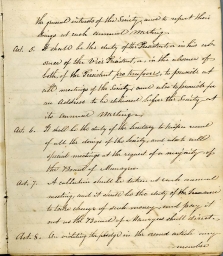 the general interests of the Society, and to report their
doings at each annual meeting.
Art. 5. It shall be the duty of the President, or in his ab-
sence of the Vice President, or in the absence of
both, of the President pro tempore, to preside at
all meetings of the Society, and also to provide for
an address to be delivered before the Society, at
its annual meeting.
Art. 6. It shall be the duty of the Secretary to keep a record
of all the doings of the Society, and also to call
special meetings at the request of a majority of
the Board of Managers.
Art. 7. A collection shall be taken at each annual
meeting, and it shall be the duty of the Treasurer
to take charge of such money, and pay it
out as the Board of Managers shall direct.
Art. 8. By the pledge in the second article any
member